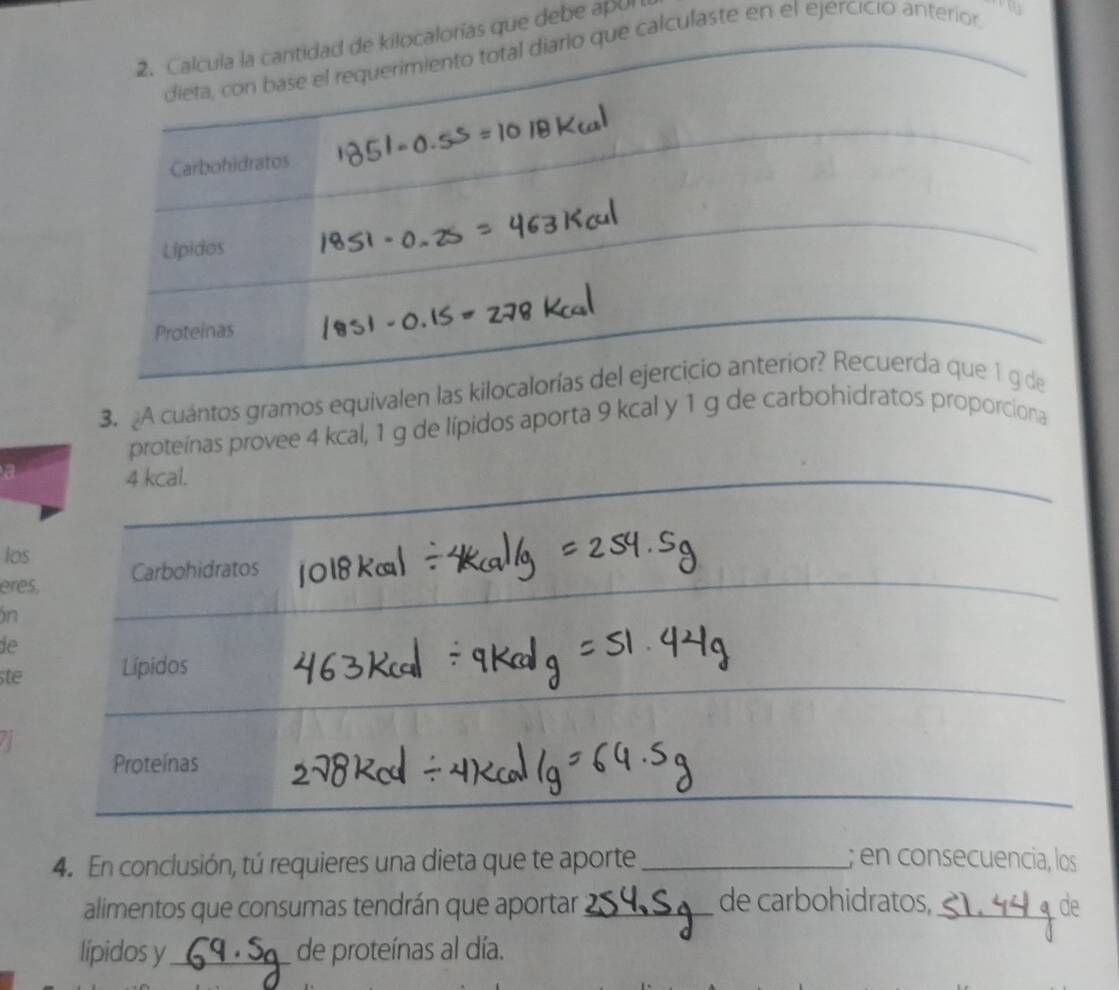 2. Calcula la cantidad de kilocalorías que debe
dieta, con base el requerimiento total diario que calculaste en el ejercicio anterior.
Carbohidratos 1851·0.55 = 1018 Kcal
Lípidos 1851·0.25 = 463 Kcal
Proteínas 1851·0.15 = 278 Kcal
3. ¿A cuántos gramos equivalen las kilocalorías del ejercicio anterior? Recuerda que 1 g de
proteínas provee 4 kcal, 1 g de lípidos aporta 9 kcal y 1 g de carbohidratos proporciona
4 kcal.
Carbohidratos 1018 kcal ÷ 4kcal/g = 254.5g
Lípidos 463 Kcal ÷ 9Kcal g = 51.44g
Proteínas 278 Kcal ÷ 4Kcal/g = 69.5g
los
eres,
ón
de
ste
4. En conclusión, tú requieres una dieta que te aporte ; en consecuencia, los
alimentos que consumas tendrán que aportar 254.5g de carbohidratos, 51.44g de
lípidos y 69.5g de proteínas al día.